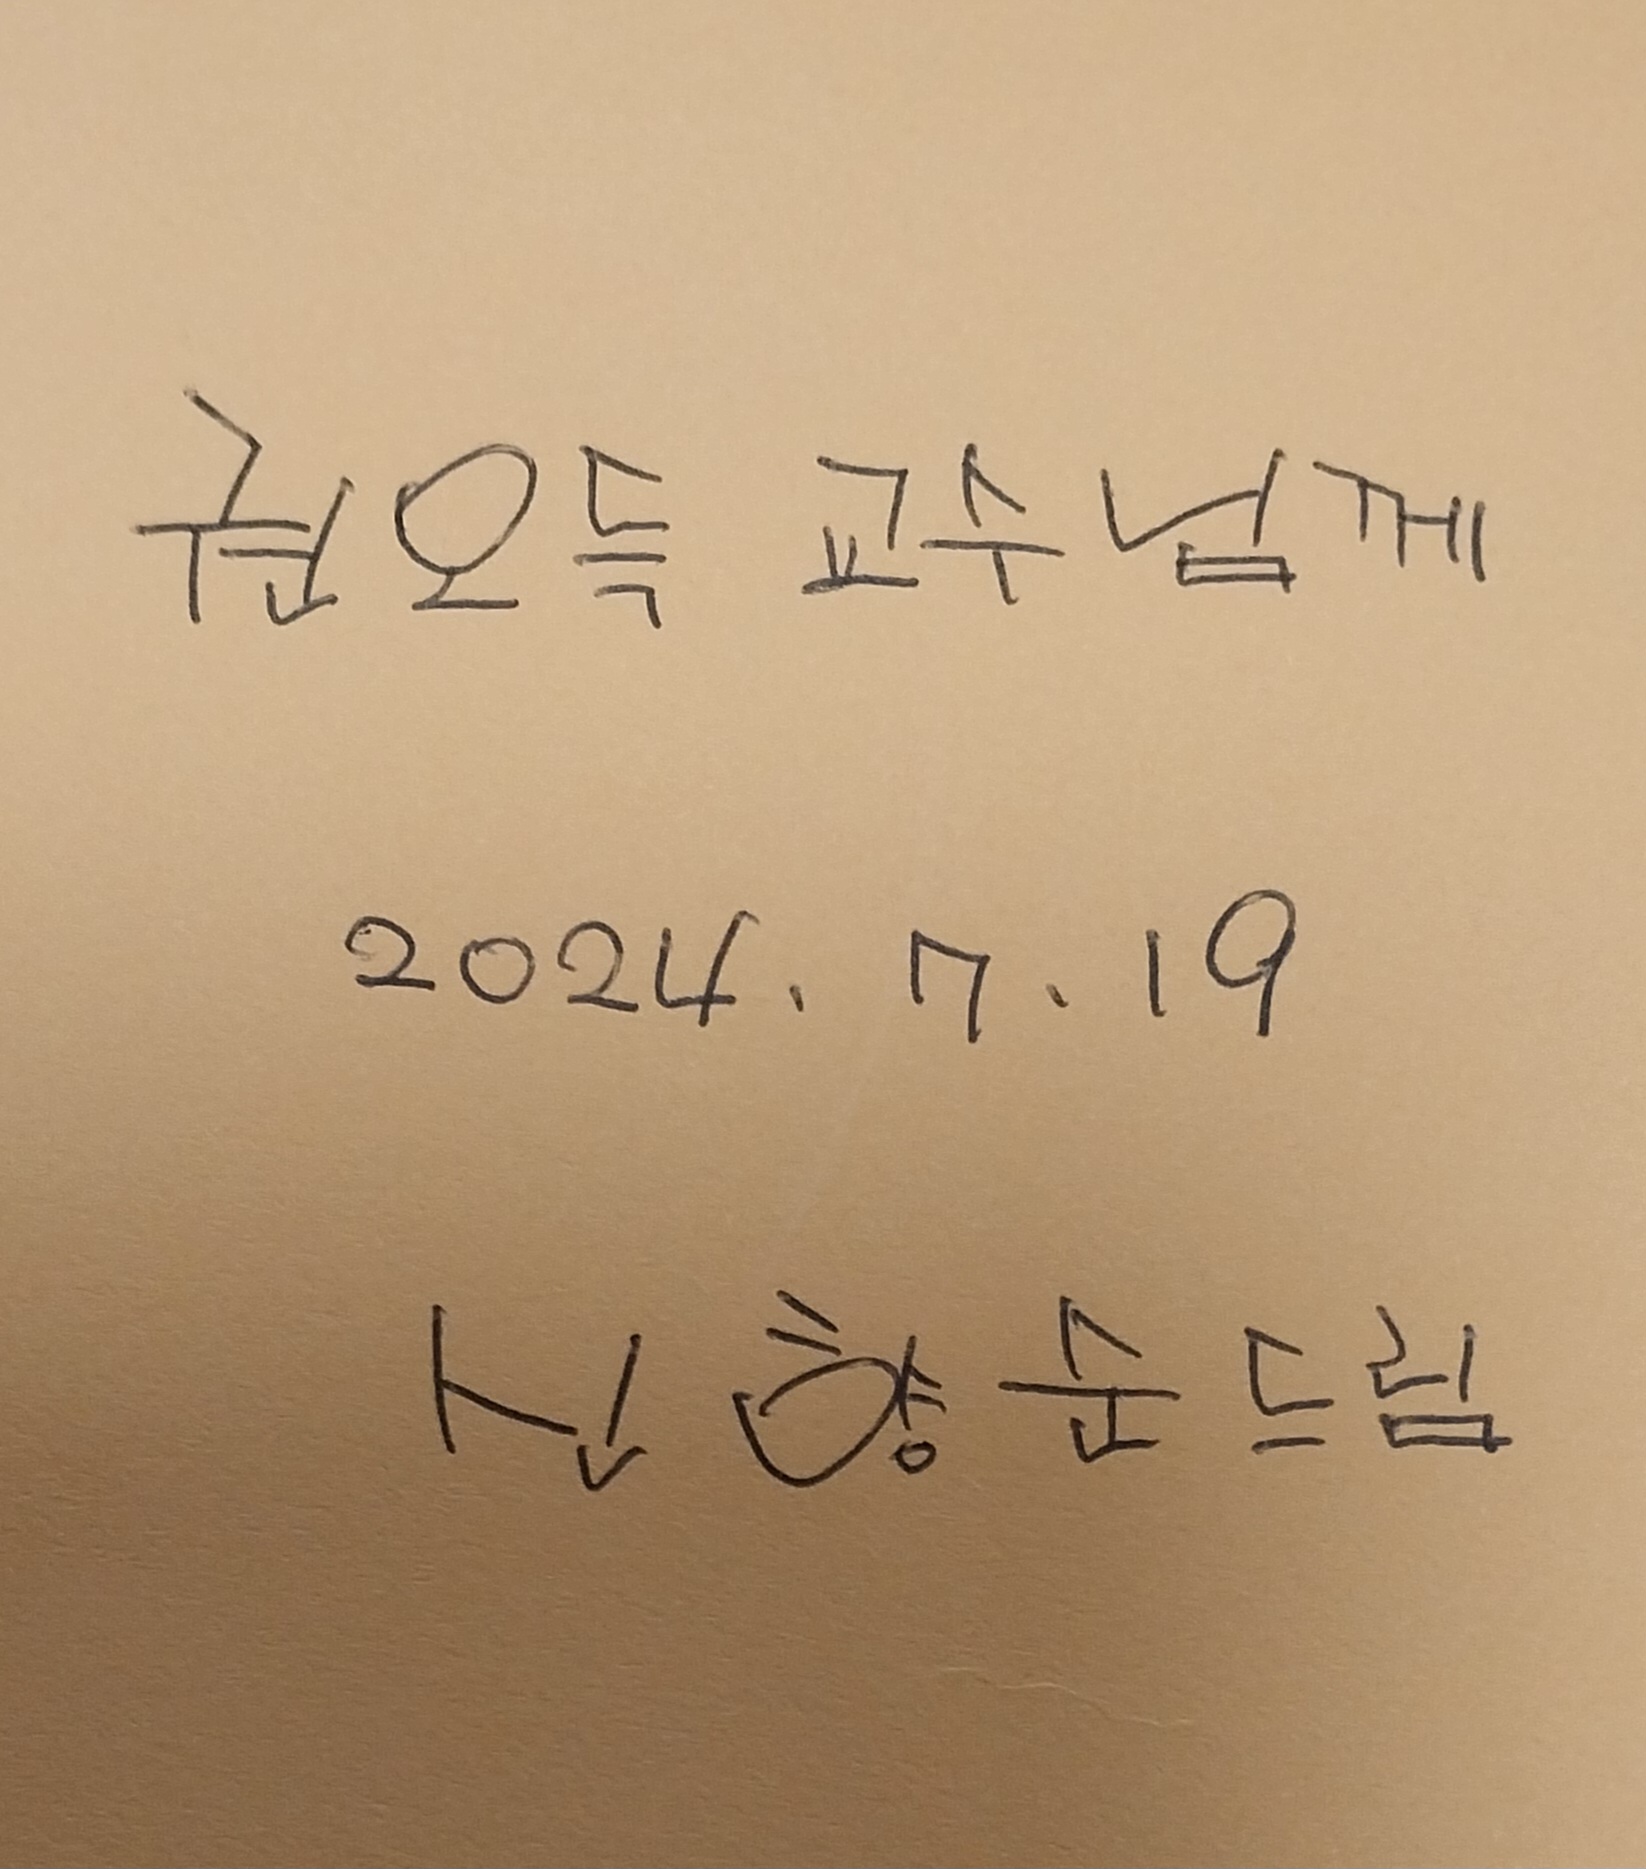 권오득 교수님께
2024. 7. 19
신향순드림